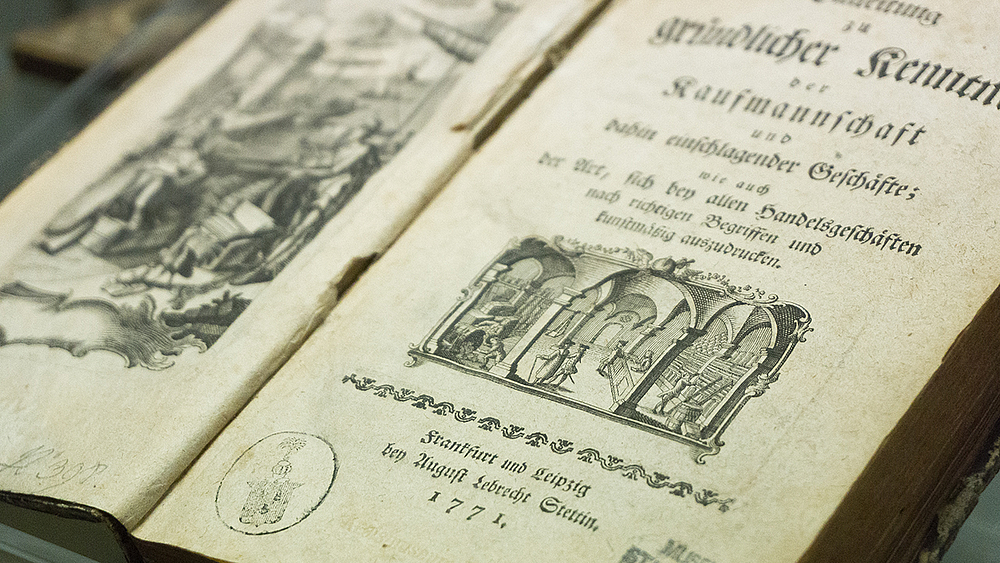 zu
gründlicher
der
Kaufmannschaft
und
dahin einschlagender Geschäfte;
wie auch
der Art, sich bey allen Handelsgeschäften
nach richtigen Begriffen und
kunstmäßig auszudrucken.
Frankfurt und Leipzig
bey August Lebrecht Stettin.
1771.